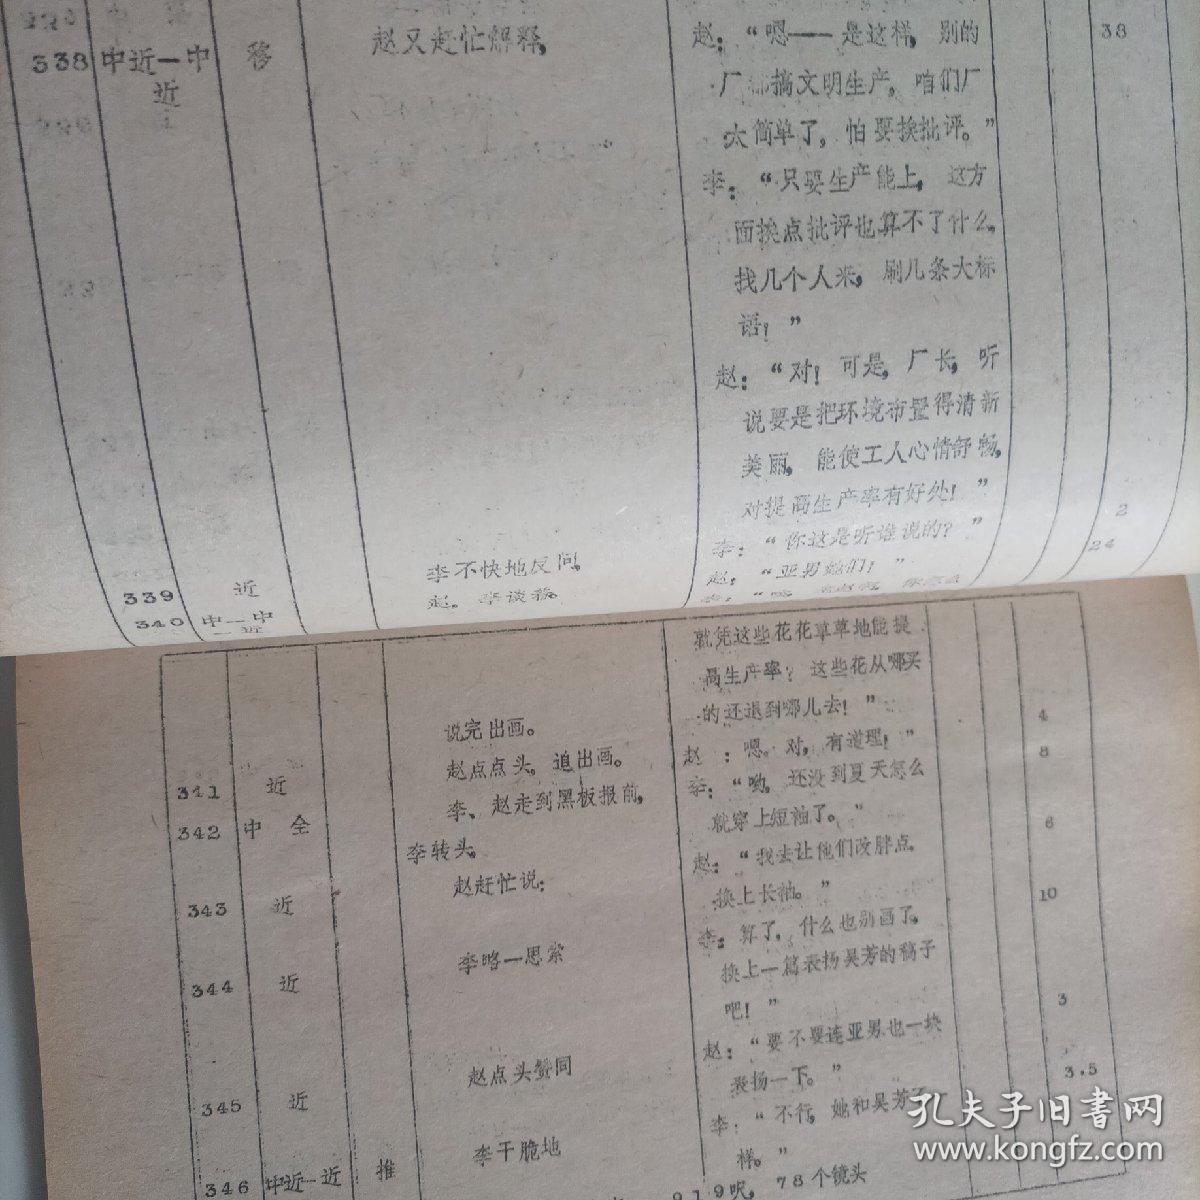 338 中近一中近 移 赵又赶忙解释, 赵：“嗯——是这样，别的 38
厂都搞文明生产，咱们厂
太简单了，怕要挨批评。”
李：“只要生产能上，这方
面挨点批评也算不了什么。
找几个人来，刷几条大标
语！”
赵：“对！可是，厂长，听
说要是把环境布置得清新
美丽，能使工人心情舒畅，
对提高生产率有好处！”
339 近 李不快地反问。 李：“你这是听谁说的？” 2
340 中一中一近 赵：“亚男她们！” 24
就凭这些花花草草地能提
高生产率？这些花从哪买
的还退到哪儿去！”
说完出画。
341 近 赵点点头，追出画。 赵：嗯。对，有道理！” 4
342 中 全 李、赵走到黑板报前， 李：“呦，还没到夏天怎么 8
李转头， 就穿上短袖了。”
343 近 赵赶忙说： 赵：“我去让他们改胖点。 6
换上长袖。”
344 近 李略一思索 李：算了，什么也别画了， 10
换上一篇表扬吴芳的稿子
吧！”
345 近 赵点头赞同 赵：“要不要连亚男也一块 3
表扬一下。”
346 中近一近 推 李干脆地 李：“不行，她和吴芳不 3.5
样。”
919呎，78个镜头
孔夫子旧书网
www.kongfz.com